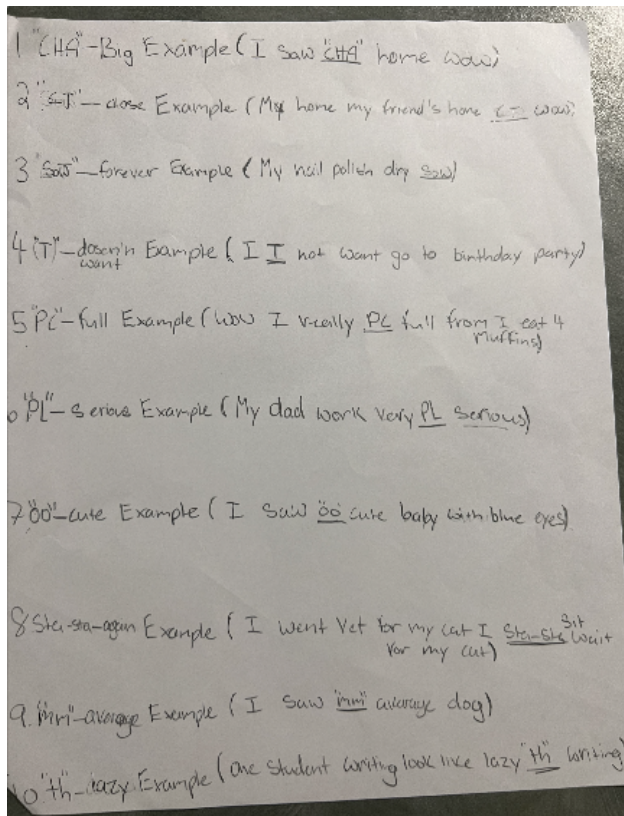 1 "CHA"-Big Example (I saw "CHA" home wow)
2 — close Example (My home my friend's home wow)
3 "SOW"—forever Example (My nail polish dry sow)
4 "(T)"—dosen'n Example (I I not want go to birthday party)
want
5 "PC"-full Example (wow I really PC full from I eat 4
muffins)
"PL"—serious Example (My dad work very PL serious)
7 "öö"—cute Example (I saw öö cute baby with blue eyes)
8 Sta-sta-again Example (I went vet for my cat I Sta-sta sit wait
for my cat)
9. "mm"-average Example (I saw "mm" average dog)
10 "th"-lazy Example (one student writing look like lazy "th" writing)